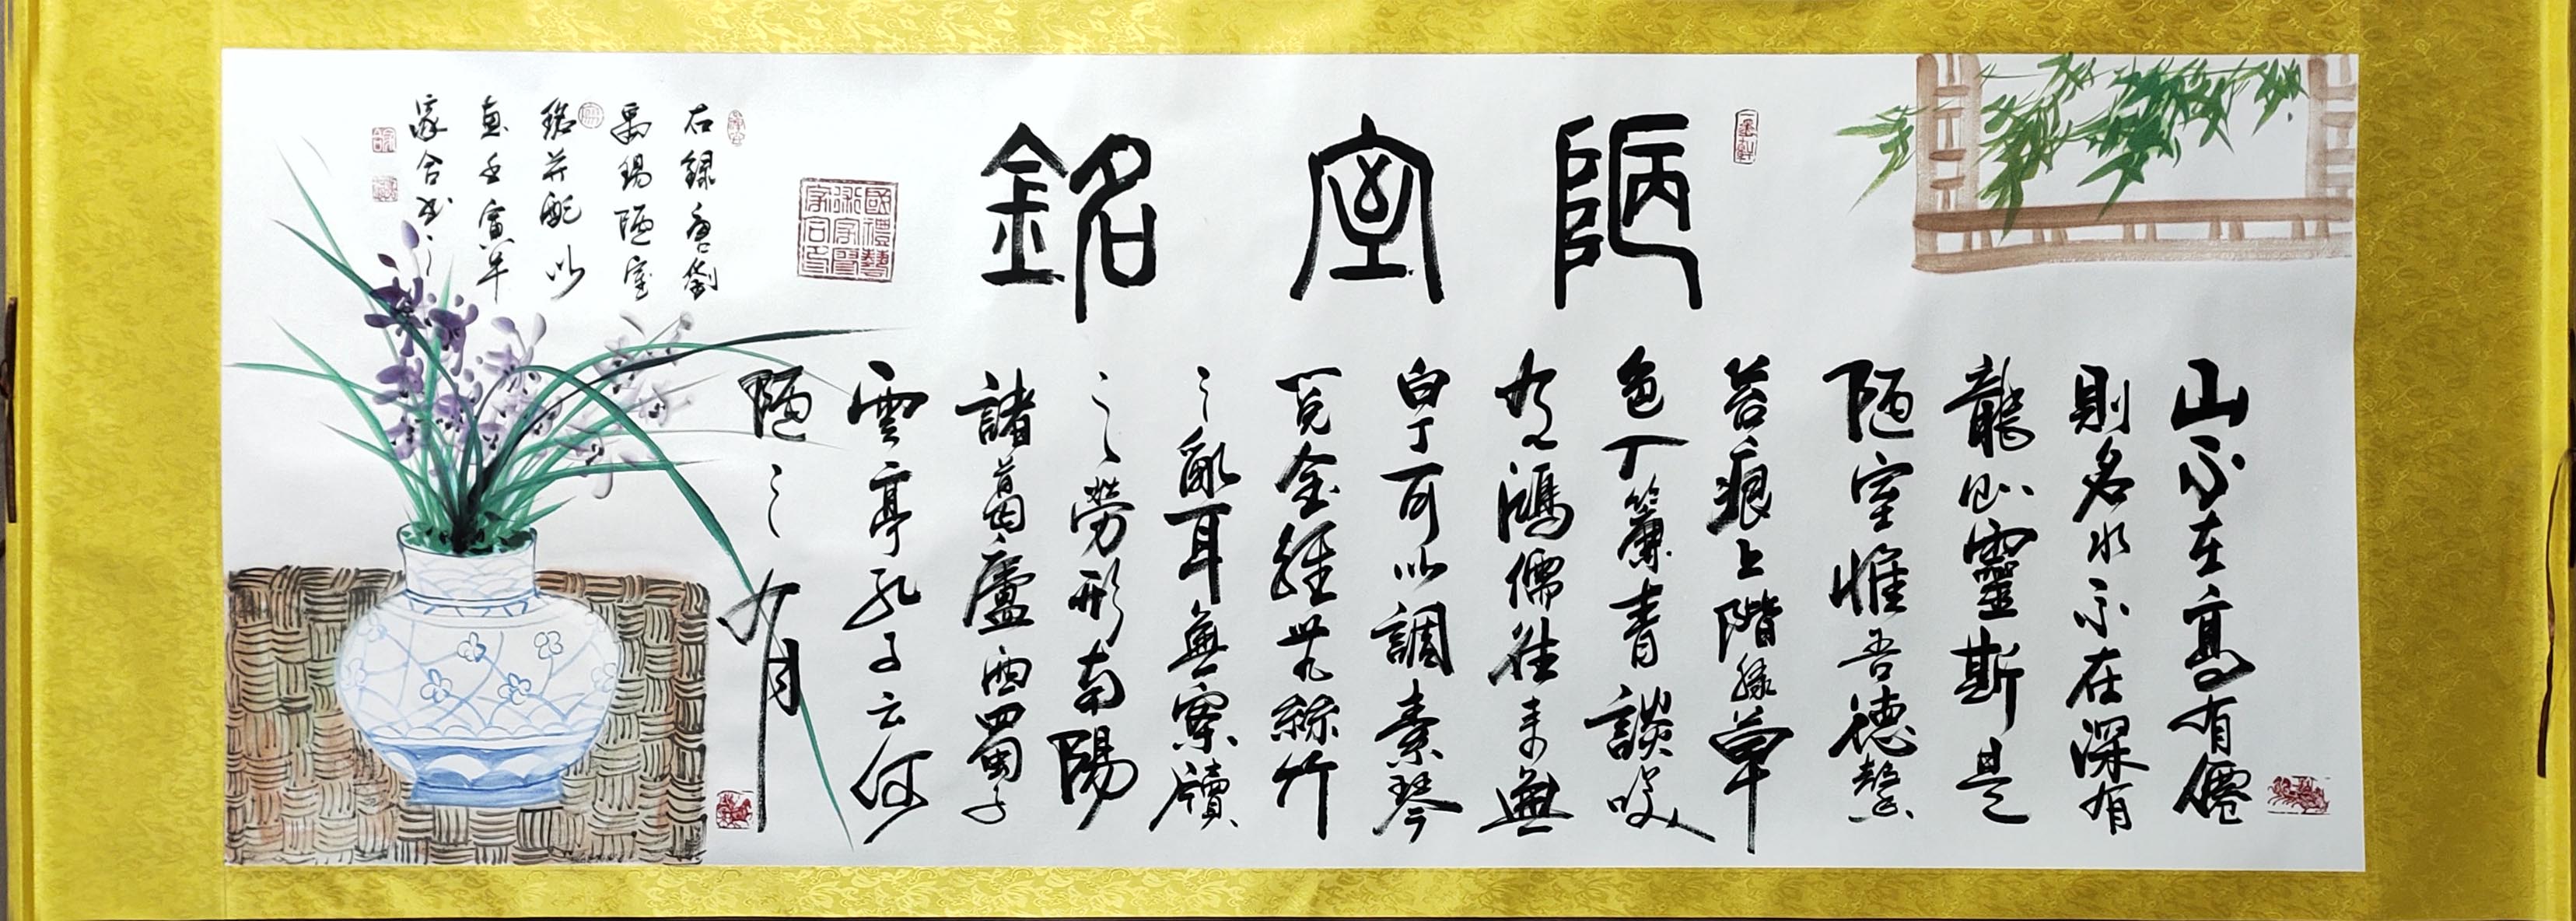 陋室銘
山不在高有僊
則名水不在深有
龍則靈斯是
陋室惟吾德馨
苔痕上階緑草
色入簾青談笑
有鴻儒往来無
白丁可以調素琴
閲金經無絲竹
之亂耳無案牘
之勞形南陽
諸葛廬西蜀子
雲亭孔子云何
陋之有
右録唐劉
禹錫陋室
銘并配以
畫壬寅年
家合书之